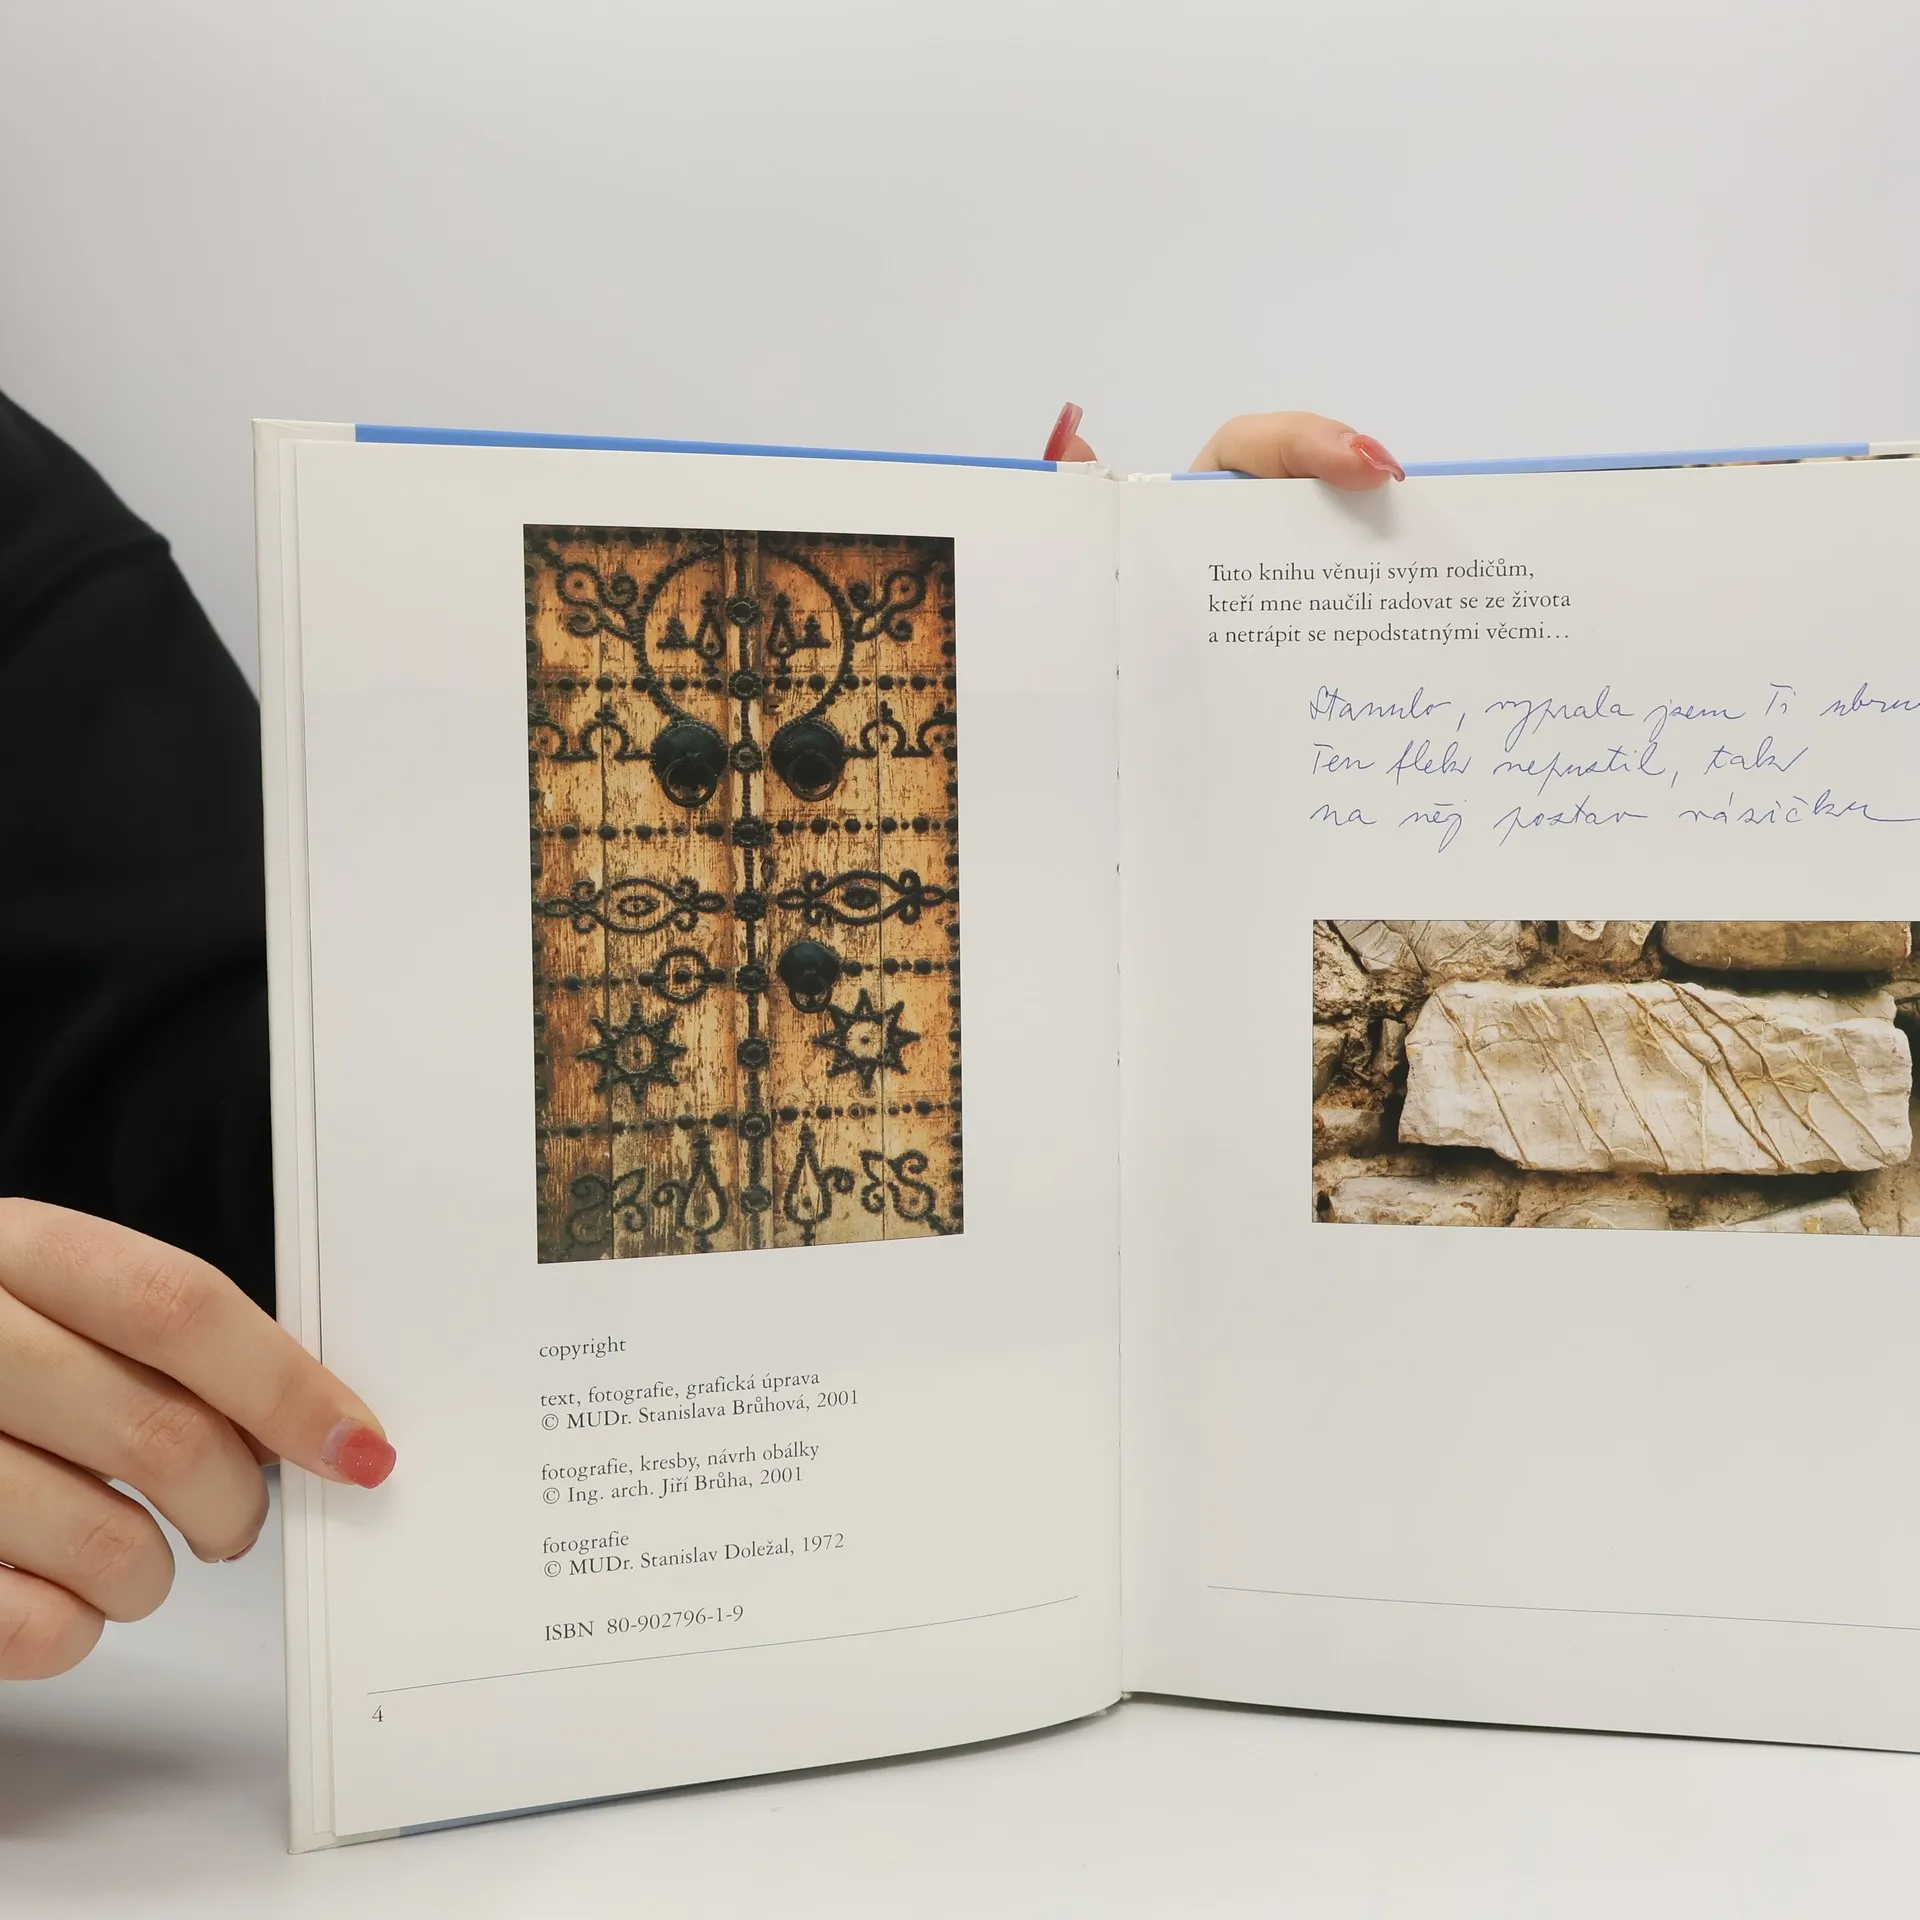 copyright
text, fotografie, grafická úprava
© MUDr. Stanislava Brůhová, 2001
fotografie, kresby, návrh obálky
© Ing. arch. Jiří Brůha, 2001
fotografie
© MUDr. Stanislav Doležal, 1972
ISBN 80-902796-1-9
4
Tuto knihu věnuji svým rodičům,
kteří mne naučili radovat se ze života
a netrápit se nepodstatnými věcmi...
Stanulo, vyprala jsem Ti ubrus
Ten flek nepustil, tak
na něj postav vázičku